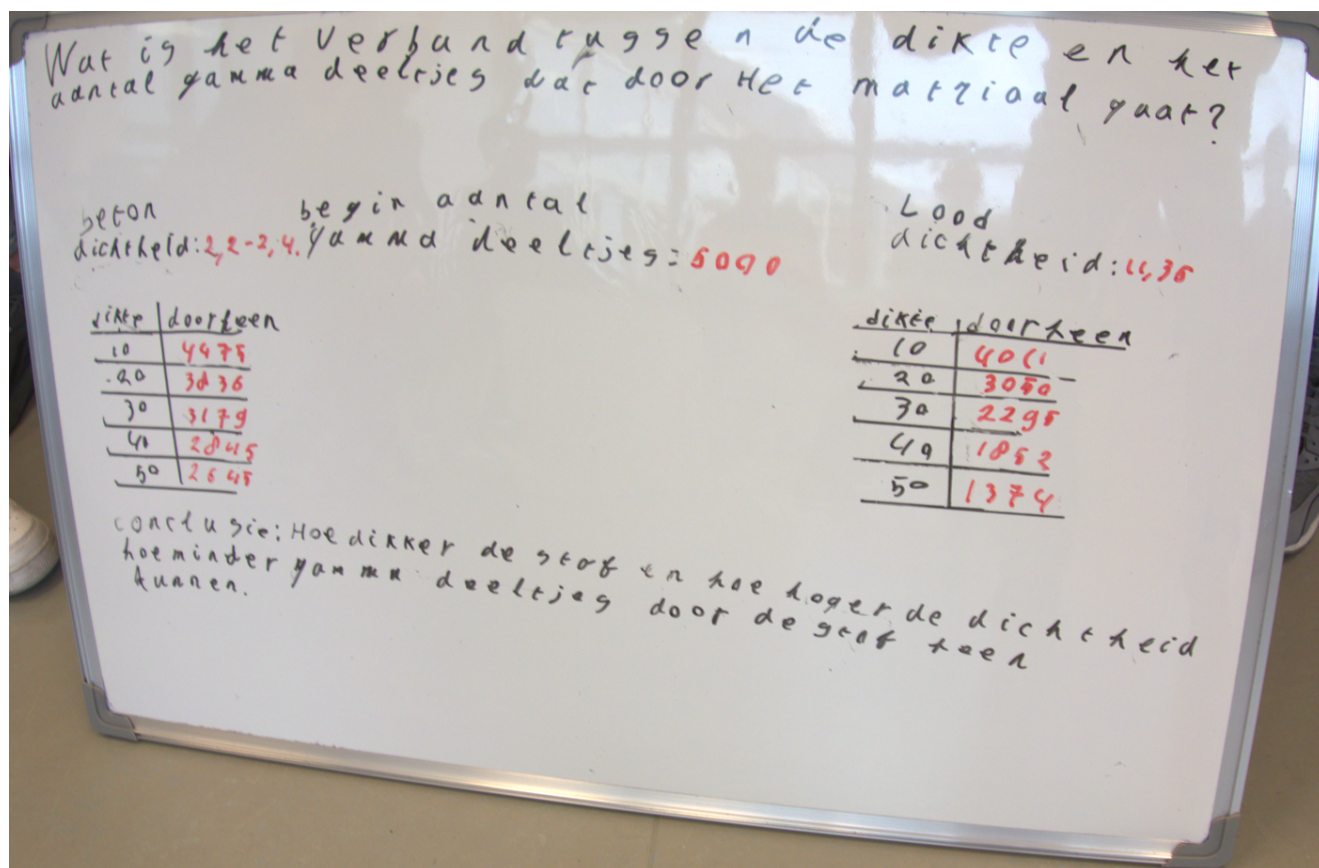 Wat is het verband tussen de dikte en het
aantal gamma deeltjes dat door Het matriaal gaat?
beton
dichtheid: 2,2-2,4.
begin aantal
gamma deeltjes = 5090
Lood
dichtheid: 11,35
dikte doorheen
10 4475
20 3836
30 3179
40 2845
50 2645
dikte doorheen
10 4011
20 3050
30 2295
40 1852
50 1374
conclusie: Hoe dikker de stof en hoe hoger de dichtheid
hoe minder gamma deeltjes door de stof heen
kunnen.